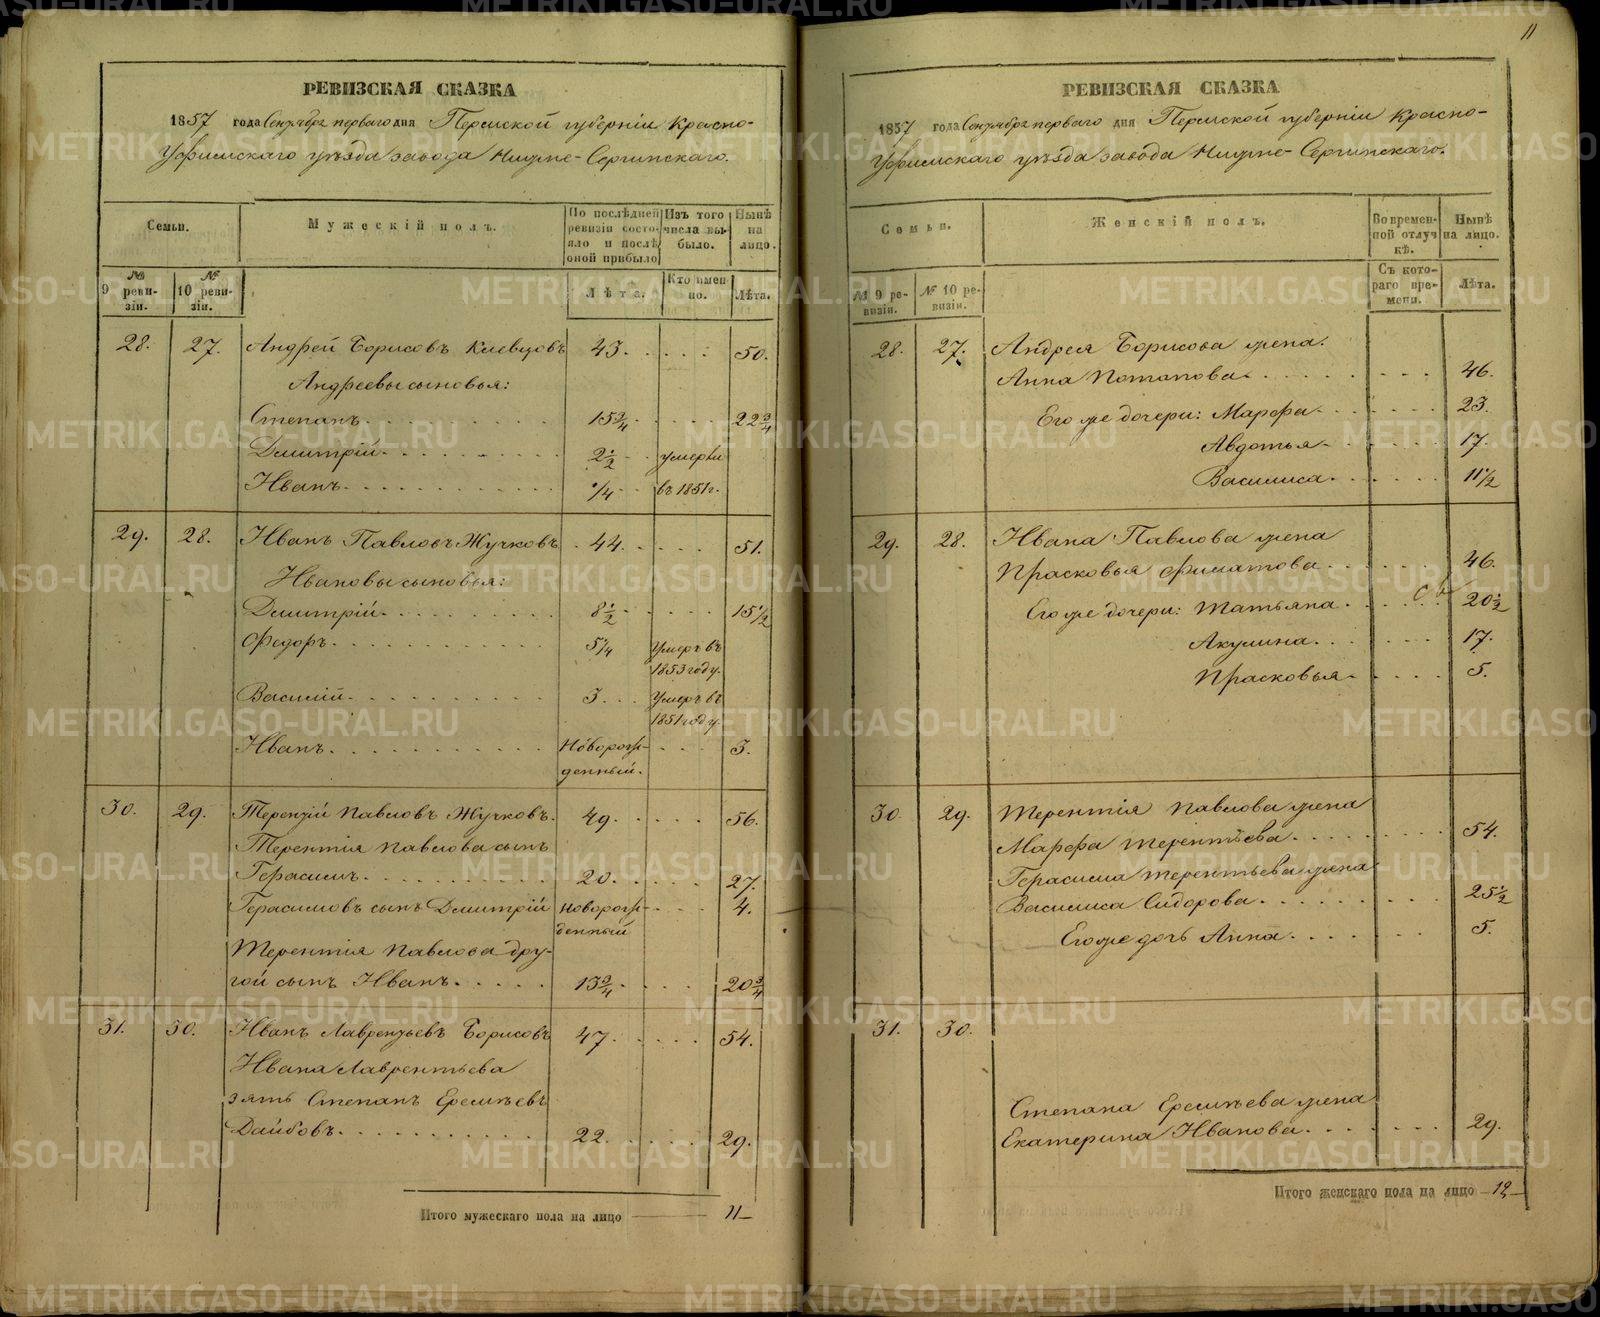 11
РЕВИЗСКАЯ СКАЗКА
1857 года Сентября перваго дня Пермской губерніи Красно-
Уфимскаго уѣзда завода Нижне-Сергинскаго.
Семьи.
Мужескій полъ.
По послѣдней ревизіи состояло и послѣ оной прибыло
Изъ того числа выбыло.
Нынѣ на лицо.
№ 9 ревизіи.
№ 10 ревизіи.
Лѣта.
Кто именно.
Лѣта.
28. 27. Андрей Борисовъ Клевцовъ 43. 50.
Андреевы сыновья:
Степанъ 15 3/4 22 3/4
Дмитрій 2 1/2 умерли
Иванъ 1/4 въ 1851 г.
29. 28. Иванъ Павловъ Жучковъ 44. 51.
Ивановы сыновья:
Дмитрій 8 1/2 15 1/2
Федоръ 5 1/4 Умеръ въ
1853 году.
Василій 3 Умеръ въ
1851 году.
Иванъ Новорож- 3.
денный.
30. 29. Терентій Павловъ Жучковъ. 49. 56.
Терентія Павлова сынъ
Герасимъ 20. 27.
Герасимовъ сынъ Дмитрій Новорож- 4.
денный
Терентія Павлова дру-
гой сынъ Иванъ 13 3/4 20 3/4
31. 30. Иванъ Лаврентьевъ Борисовъ 47. 54.
Ивана Лаврентьева
зять Степанъ Еремѣевъ
Дайбовъ 22. 29.
Итого мужескаго пола на лицо 11
РЕВИЗСКАЯ СКАЗКА
1857 года Сентября перваго дня Пермской губерніи Красно-
Уфимскаго уѣзда завода Нижне-Сергинскаго.
Семьи.
Женскій полъ.
Во временной отлучкѣ.
Нынѣ на лицо.
№ 9 ревизіи.
№ 10 ревизіи.
Съ котораго времени.
Лѣта.
28. 27. Андрея Борисова жена.
Анна Потапова 46.
Его же дочери: Марфа 23.
Авдотья 17.
Василиса 11 1/2
29. 28. Ивана Павлова жена
Прасковья Филатова 46.
Его же дочери: Татьяна 20 1/2
Акулина 17.
Прасковья 5.
30. 29. Терентія Павлова жена
Марфа Терентьева 54.
Герасима Терентьева жена
Василиса Сидорова 25 1/2
Его же дочь Анна 5.
31. 30.
Степана Еремѣева жена
Екатерина Иванова 29.
Итого женскаго пола на лицо 12
METRIKI.GASO-URAL.RU